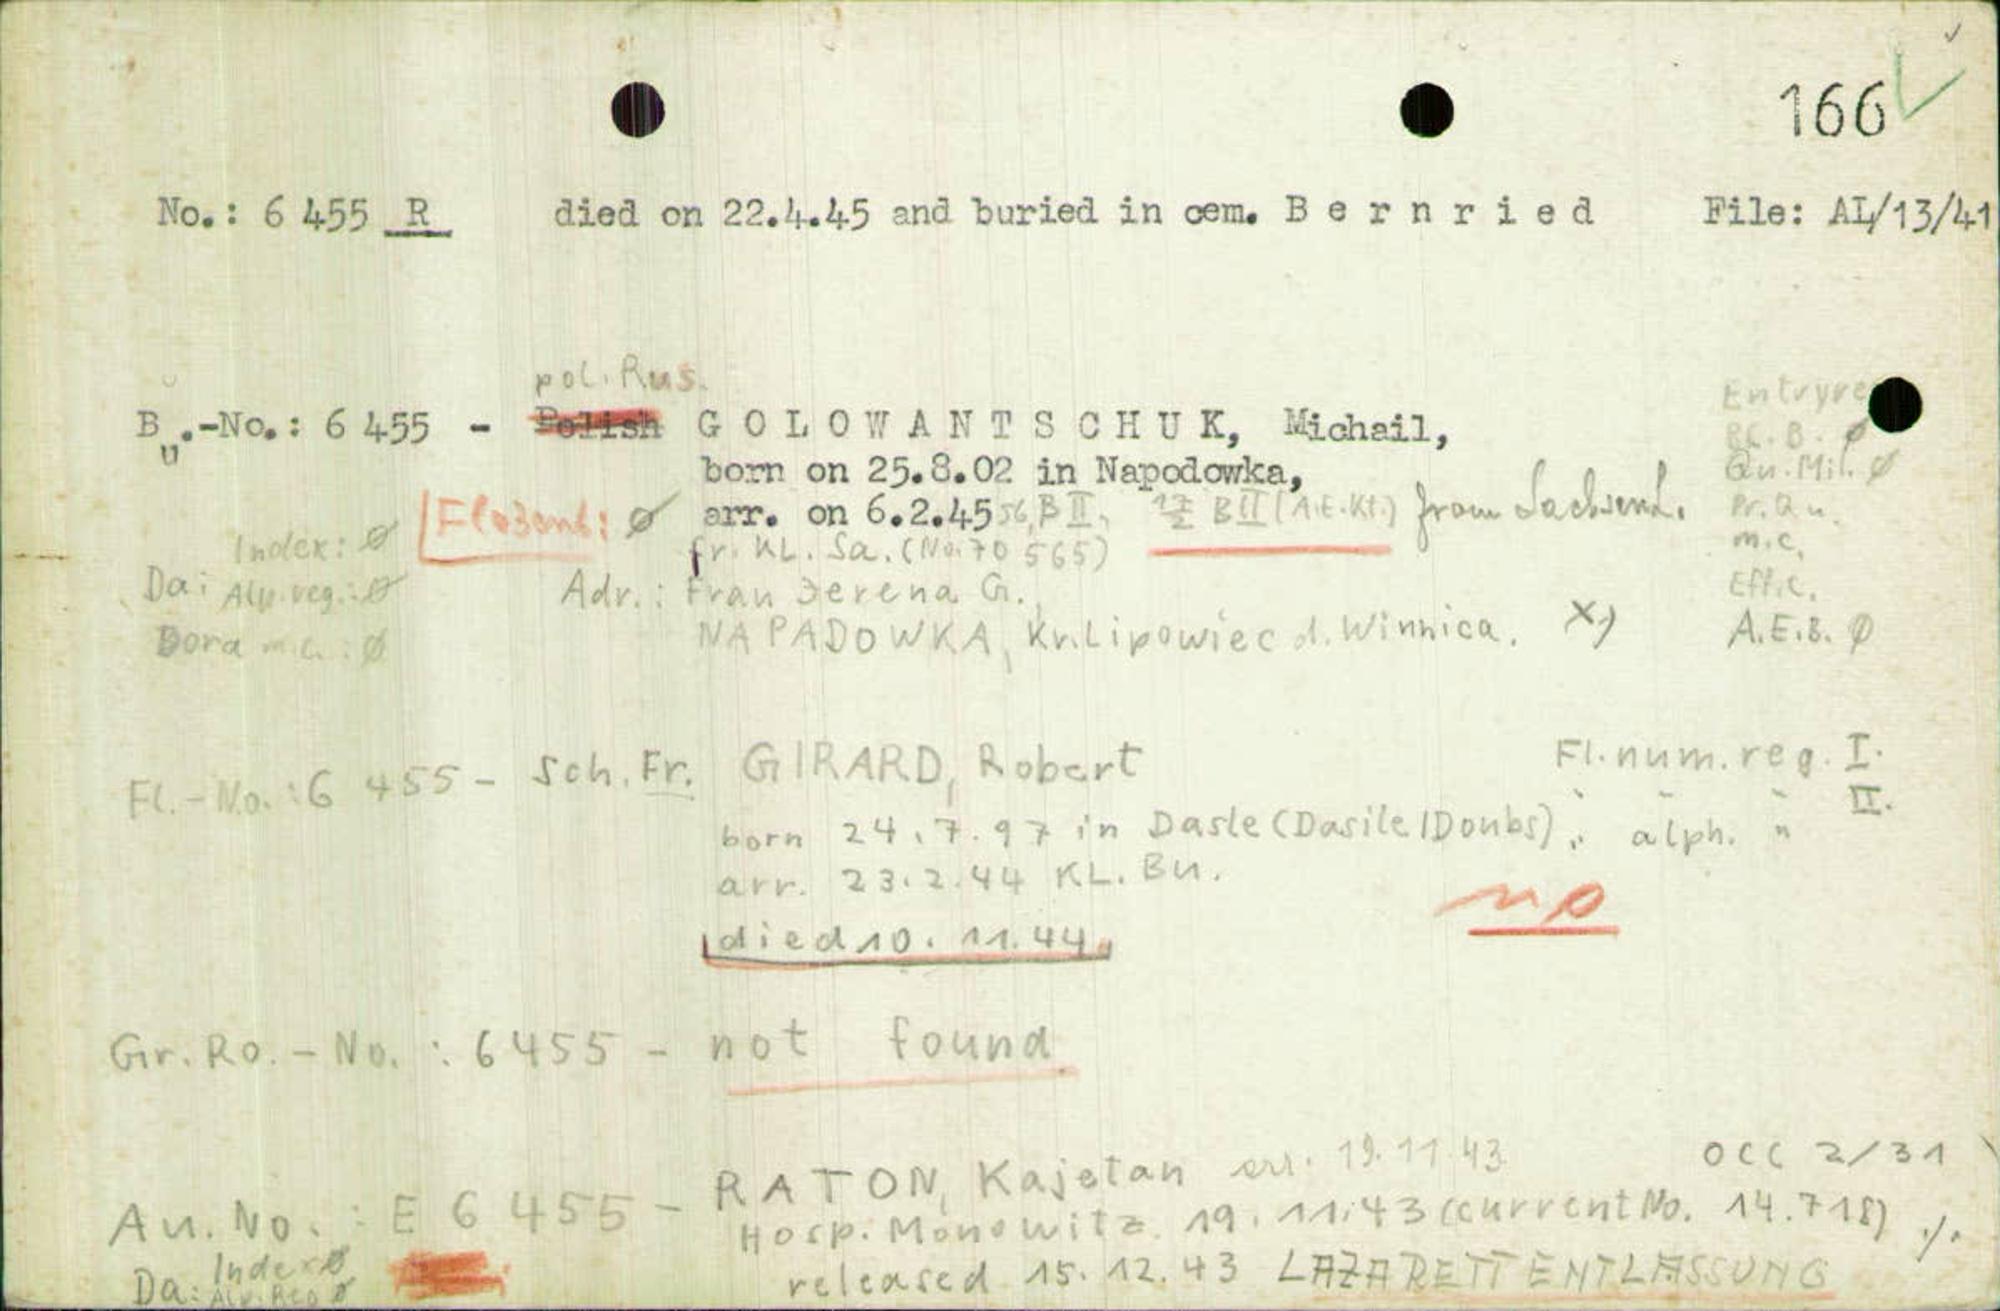 166
No.: 6 455 R died on 22.4.45 and buried in cem. B e r n r i e d File: AL/13/41
pol. Rus.
Bu.-No.: 6 455 - Polish G O L O W A N T S C H U K, Michail,
born on 25.8.02 in Napodowka,
arr. on 6.2.45 56, B II, B II (A.E.Kt.) from Sachsenh.
Index: Ø
fr. KL. Sa. (No. 70 565)
Da: Alp. reg.: Ø
Adr.: Frau Jerena G.,
Dora m.c. : Ø
NAPADOWKA, Kr. Lipowiec d. Winnica. X)
Qu. Mil. Ø
Pr. Qu.
m.c.
Eff.c.
A.E.B. Ø
Fl.-No.: 6 455 - Sch. Fr. GIRARD, Robert
Fl. num. reg. I.
" " " II.
born 24.7.97 in Dasle (Dasile/Doubs)
" alph. "
arr. 23.2.44 KL. Bu.
no
died 10. 11. 44
Gr. Ro. - No. : 6455 - not found
Au. No. : E 6 455 - RATON, Kajetan arr. 19.11.43
OCC 2/31
Hosp. Monowitz 19. 11. 43 (current No. 14.718) ./.
Da: Index Ø
Alp. Reg Ø
released 15. 12. 43 LAZARETT ENTLASSUNG